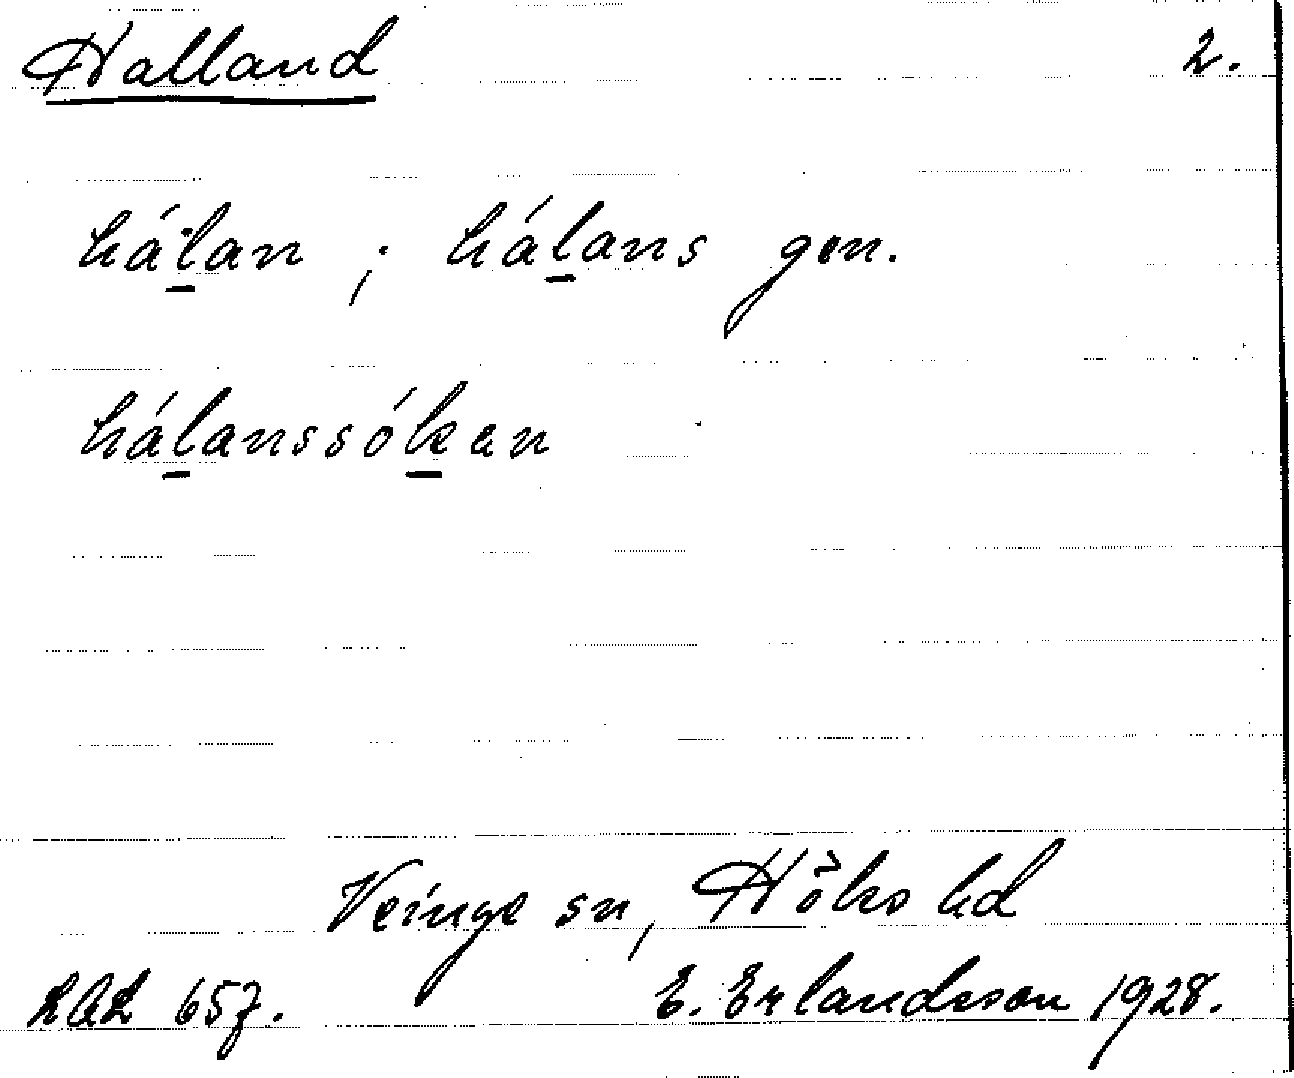 Halland 2.
hál̲an ; hál̲ans gen.
hál̲anssók̲en
Veinge sn, Höks hd
LAL 657. E. Erlandsson 1928.